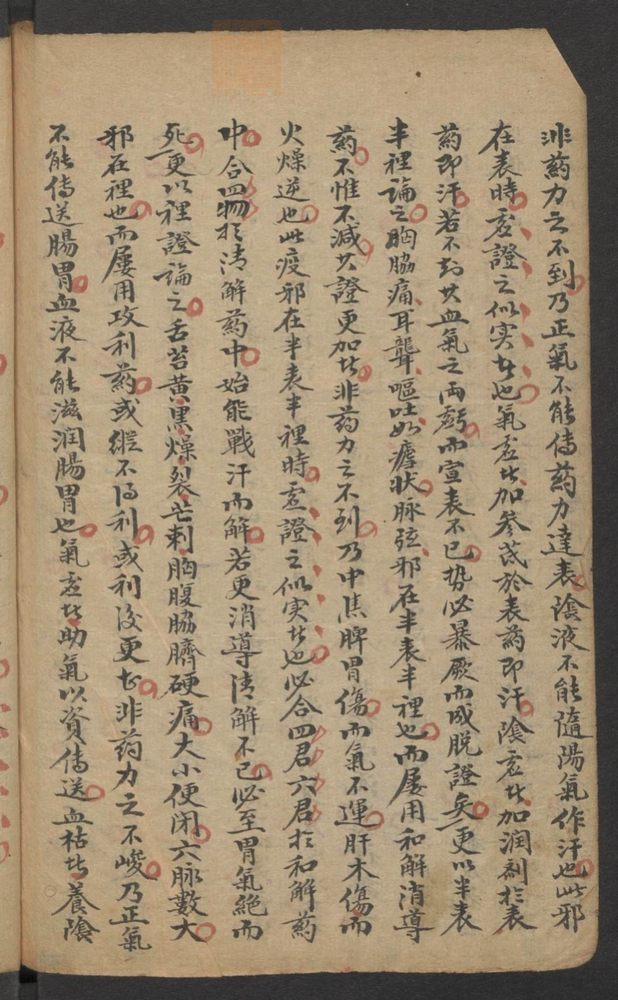 非药力之不到乃正氣不能傳药力達表陰液不能隨陽氣作汗也此邪
在表時虛證之似实者也氣虛者加參茋於表药即汗陰虛者加润剂扵表
药即汗若不知其血氣之両虧而宣表不已势必暴厥而成脱證矣更以半表
半裡論之胸脇痛耳聾嘔吐如瘧状脉弦邪在半表半裡也而屢用和解消導
药不惟不减其證更加者非药力之不到乃中焦脾胃傷而氣不運肝木傷而
火燥逆也此疫邪在半表半裡時虛證之似实者也必合四君六君扵和解药
中合四物扵清解药中始能戰汗而解若更消導清解不已必至胃氣絕而
死更以裡證論之舌苔黄黒燥裂芒刺胸腹脇臍硬痛大小便闭六脉數大
邪在裡也而屢用攻利药或緃不得利或利後更甚非药力之不峻乃正氣
不能傳送腸胃血液不能滋润腸胃也氣虛者助氣以資傳送血枯者養陰